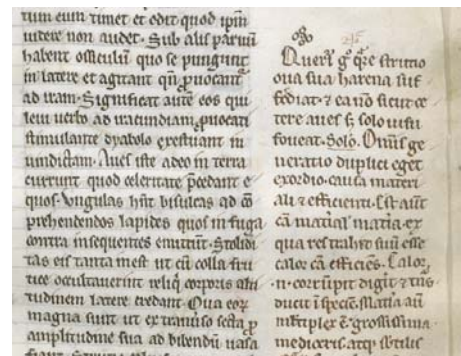 tum eum timet et odit quod ipm
uidere non audet. Sub alis paruum
habent ossiculum quo se pungunt
in latere et agitant qn puocant
ad iram. Significat aute eos qui
leui uerbo ad iracundiam puocati
stimulante dyabolo exestuant in
uindictam. Aues iste adeo in terra
currunt quod celeritate pcedant e
quos. Vngulas hnt bisulcas ad co
prehendendos lapides quos in fuga
contra insequentes emittunt. Stolidi
tas eis tanta inest ut cu colla fru
tice occultauerint reliq corporis alti
tudinem latere credant. Oua eoz
magna sunt ut ex transuiso secta p
amplitudine sua ad bibendu uasa
Querit g qre strutio
oua sua harena suf
fodiat. et ea no sicut ce
tere aues s; solo uisu
foueat. Solo. Omis ge
neratio duplici eget
exordio. causa materi
ali et efficienti. Est aut
ca matial matia ex
qua res trahit suu esse
calor ca efficies. Calor
.n. corrupit digit et tns
ducit i specie. Matia au
mltiplex e. grossissima.
mediocris atq; sbtilis